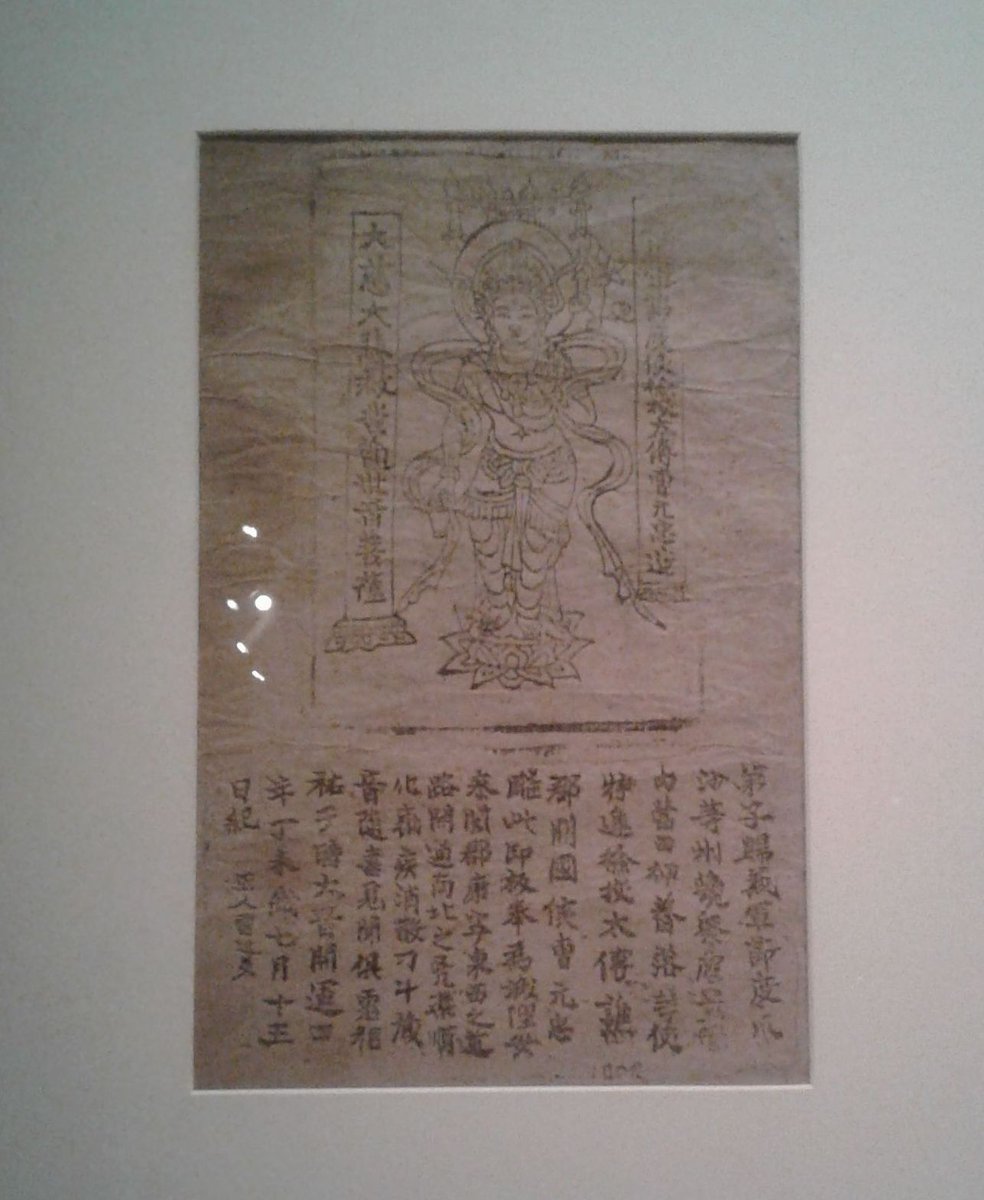 使檢校太傅曹元忠造
大慈大悲救苦觀世音菩薩
弟子歸義軍節度瓜
沙等州觀察處置管
內營田押蕃落等使
特進檢校太傅譙
郡開國侯曹元忠
雕此印板奉為城隍安
泰闔郡康寧東西之道
路開通南北之兇渠順
化勵疾消散刁斗藏
音隨喜見聞俱霑福
祐于時大晉開運四
年丁未歲七月十五
日紀 匠人雷延美